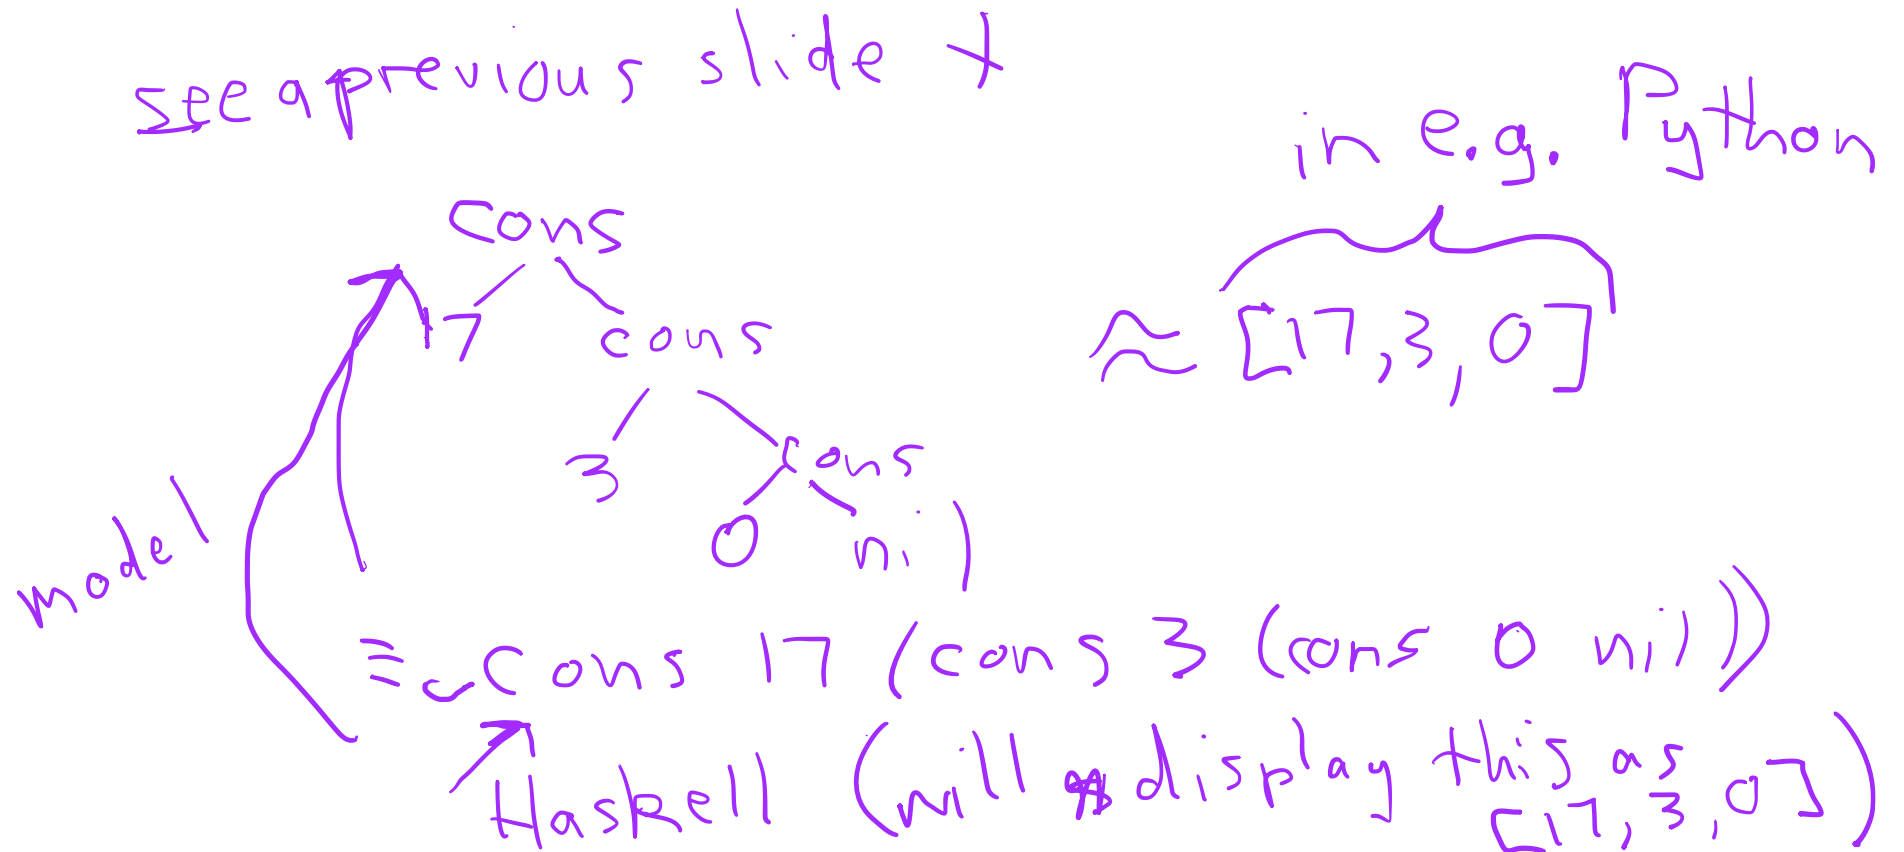 see a previous slide +
in e.g. Python
cons
17 cons
≈ [17, 3, 0]
3 cons
0 nil
model
≡ Cons 17 (cons 3 (cons 0 nil))
Haskell (will display this as
[17, 3, 0])